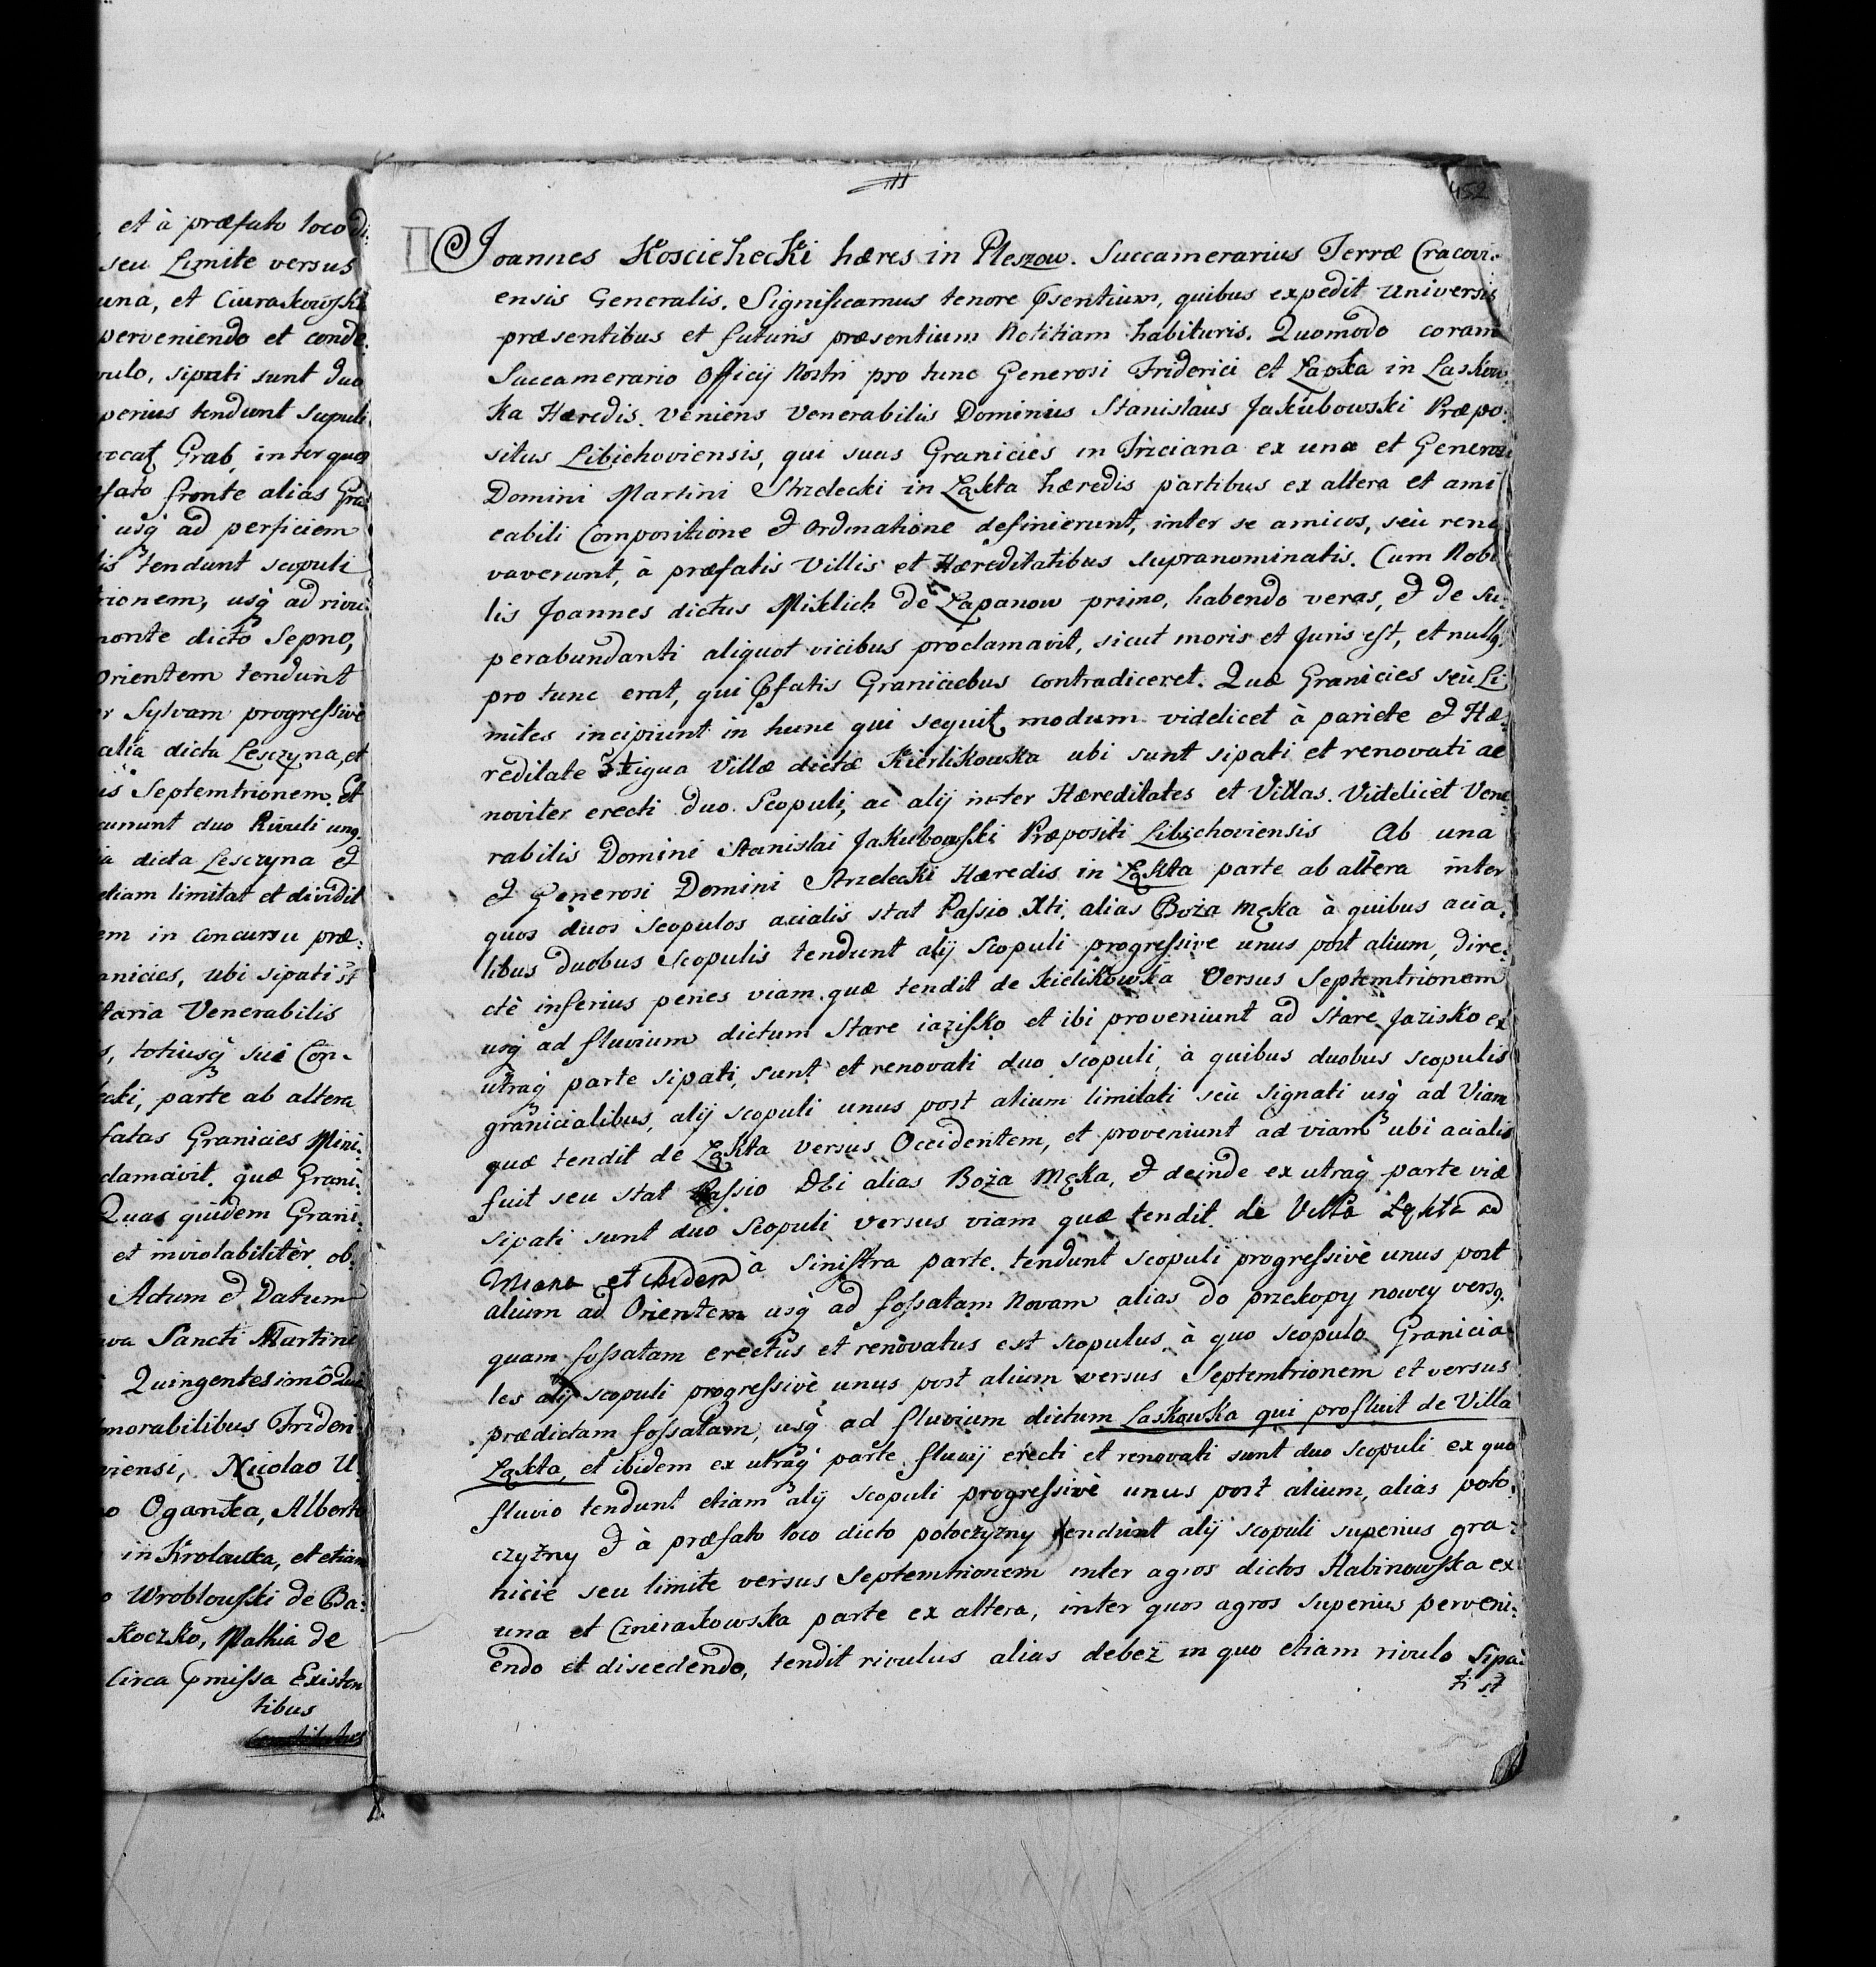 et à præfato loco di:
seu Limite versus
una, et Ciurakowski
perveniendo et conde:
vulo, sipati sunt duo
perius tendunt supuli
vocat Grab, inter quos
fato fronte alias Gra
usq ad perficiem
is tendunt scopuli
rionem, usq ad rivu:
monte dicto Sepno,
Orientem tendunt
r Sylvam progressivè
alia dicta Lesczyna, et
is Septemtrionem. et
currunt duo Rivuli unq
ia dicta Lesczyna et
etiam limitat et dividit
em in concursu præ:
anicies, ubi sipati st
taria Venerabilis
s, totiusq sui Con-
cki, parte ab altera
fatas Granicies Mini:
clamavit. quæ Grani:
Quas quidem Grani:
et inviolabilitèr ob:
Actum et Datum
va Sancti Martini
Quingentesimô
morabilibus Frideri
viensi, Nicolao U
o Oganka, Alberto
in Krolawka, et etiam
o Wroblowski de Ba:
Koczko, Mathia de
circa pmissa Existen
tibus
II
452
II Joannes Koscielecki hæres in Pleszow. Succamerarius Terræ Cracovi:
ensis Generalis. Significamus tenore psentium, quibus expedit Universis
præsentibus et futuris præsentium Notitiam habituris. Quomodo coram
Succamerario Officij Nostri pro tunc Generosi Friderici et Łapka in Laskow:
ka Hæredis. veniens Venerabilis Dominus Stanislaus Jakubowski Præpo:
situs Libichoviensis, qui suas Granicies in Triciana ex una et Generosi
Domini Martini Strzelecki in Łąkta hæredis partibus ex altera et ami
cabili Compositione et Ordinatione definierunt, inter se amicos, seù reno
vaverunt, à præfatis Villis et Hæreditatibus supranominatis. Cum Nobi
lis Joannes dictus Miklich de Łapanow primo, habendo veras, et de su:
perabundanti aliquot vicibus proclamavit, sicut moris et Juris est, et nullq
pro tunc erat, qui pfatis Graniciebus contradiceret. Quæ Granicies seù Li
mites incipiunt in hunc qui sequit modum videlicet à pariete et Hæ:
reditate 3tigua Villæ dictæ Kierlikowka ubi sunt sipati et renovati ac
noviter erecti duo Scopuli, ac alij inter Hæreditates et Villas. Videlicet Vene
rabilis Domini Stanislai Jakubowski Præpositi Libichoviensis Ab una
et Generosi Domini Strzelecki Hæredis in Łąkta parte ab altera inter
quos duos scopulos acialis stat Passio Xti, alias Boża Męka à quibus acia:
libus duobus scopulis tendunt alij scopuli progressive unus post alium, dire:
ctè inferius penes viam quæ tendit de kielikowka Versus Septemtrionem
usq ad fluvium dictum Stare iazisko et ibi proveniunt ad Stare Jazisko ex
utraq parte sipati, sunt et renovati duo scopuli, à quibus duobus scopulis
granicialibus, alij scopuli unus post alium limitati seù signati usq ad Viam
quæ tendit de Łąkta versus Occidentem, et proveniunt ad viam ubi acialis
fuit seu stat Passio DEi alias Boża Męka, et deinde ex utraq parte viæ
sipati sunt duo scopuli versus viam quæ tendit de Villa Łąkta ad
à sinistra parte tendunt scopuli progressivè unus post
alium ad Orientem usq ad fossatam Novam alias do przekopy nowey versq
quam fossatam erectus et renovatus est scopulus à quo scopulo Granicia
les alij scopuli progressivè unus post alium versus Septemtrionem et versus
prædictam fossatam, usq ad fluvium dictum Laskowka qui profluit de Villa
Łąkta, et ibidem ex utraq parte fluvij erecti et renovati sunt duo scopuli ex quo
fluvio tendunt etiam alij scopuli progressivè unus post alium, alias poto:
czyzny et à præfato loco dicto potoczyzny tendunt alij scopuli superius gra:
nicie seu limite versus Septemtrionem inter agros dictos Habinowska ex
una et Cznirakowska parte ex altera, inter quos agros superius perveni:
endo et discedendo, tendit rivulus alias debez in quo etiam rivulo Sipa:
ti st